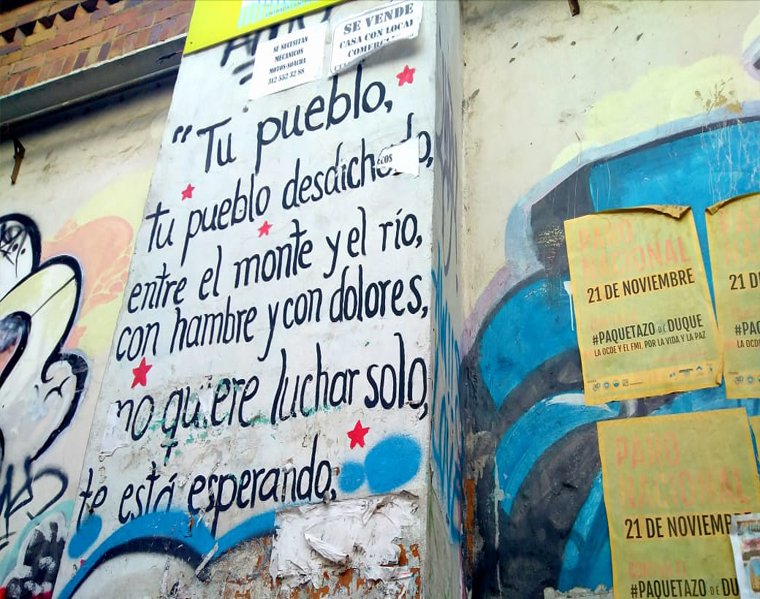 SE VENDE
CASA CON LOCAL
SE NECESITAN
MECANICOS
MOTOS-SOACHA
"Tu pueblo,
tu pueblo desdichado,
entre el monte y el río,
con hambre y con dolores,
no quiere luchar solo,
te está esperando,
PARO
NACIONAL
21 DE NOVIEMBRE
#PAQUETAZO DE DUQUE
LA OCDE Y EL FMI. POR LA VIDA Y LA PAZ
21 D
#PA
LA OC
PARO
NACIONAL
21 DE NOVIEMBR
#PAQUETAZO DE DU